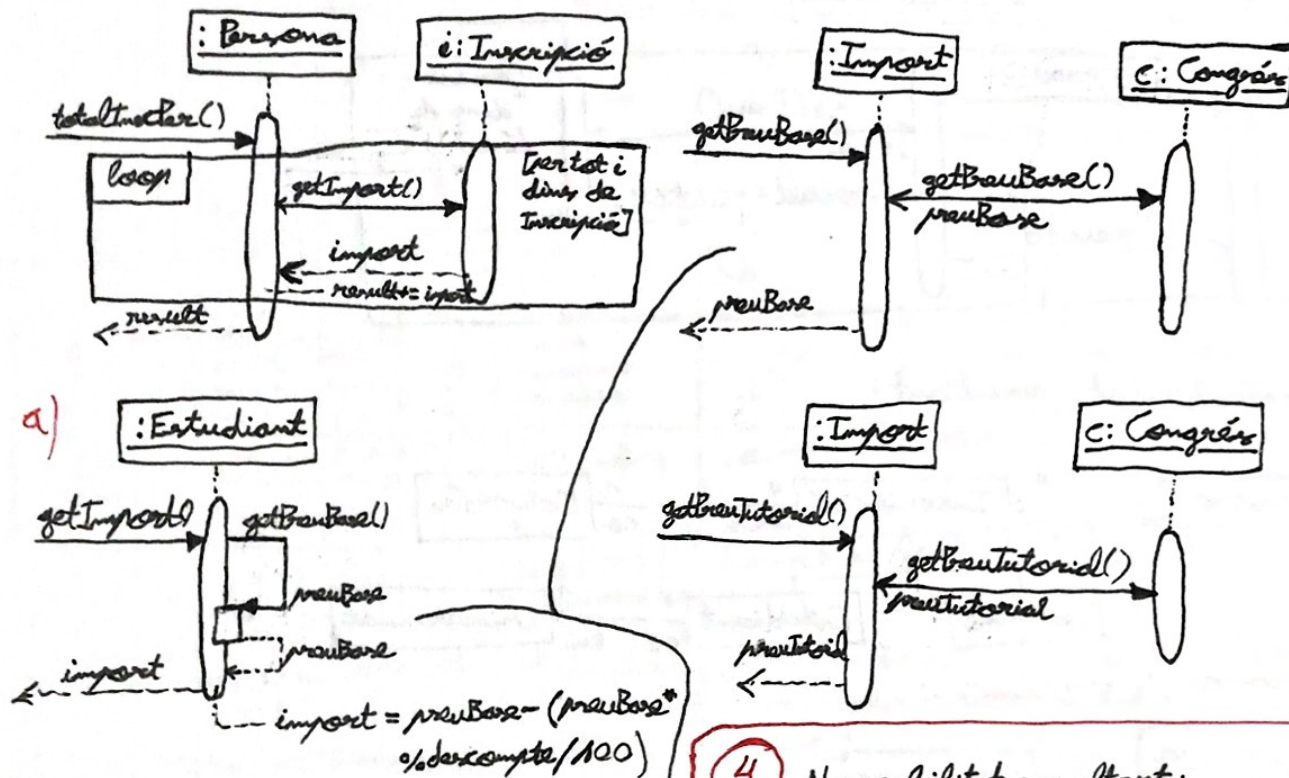 : Persona
i : Inscripció
totalInscPer()
loop
getImport()
[per tot i
dins de
Inscripció]
import
result += import
result
: Import
c : Congrés
getPreuBase()
getPreuBase()
preuBase
preuBase
a)
: Estudiant
getImport()
getPreuBase()
preuBase
preuBase
import
import = preuBase - (preuBase *
% descompte / 100)
: Import
c : Congrés
getPreuTutorial()
getPreuTutorial()
preuTutorial
4